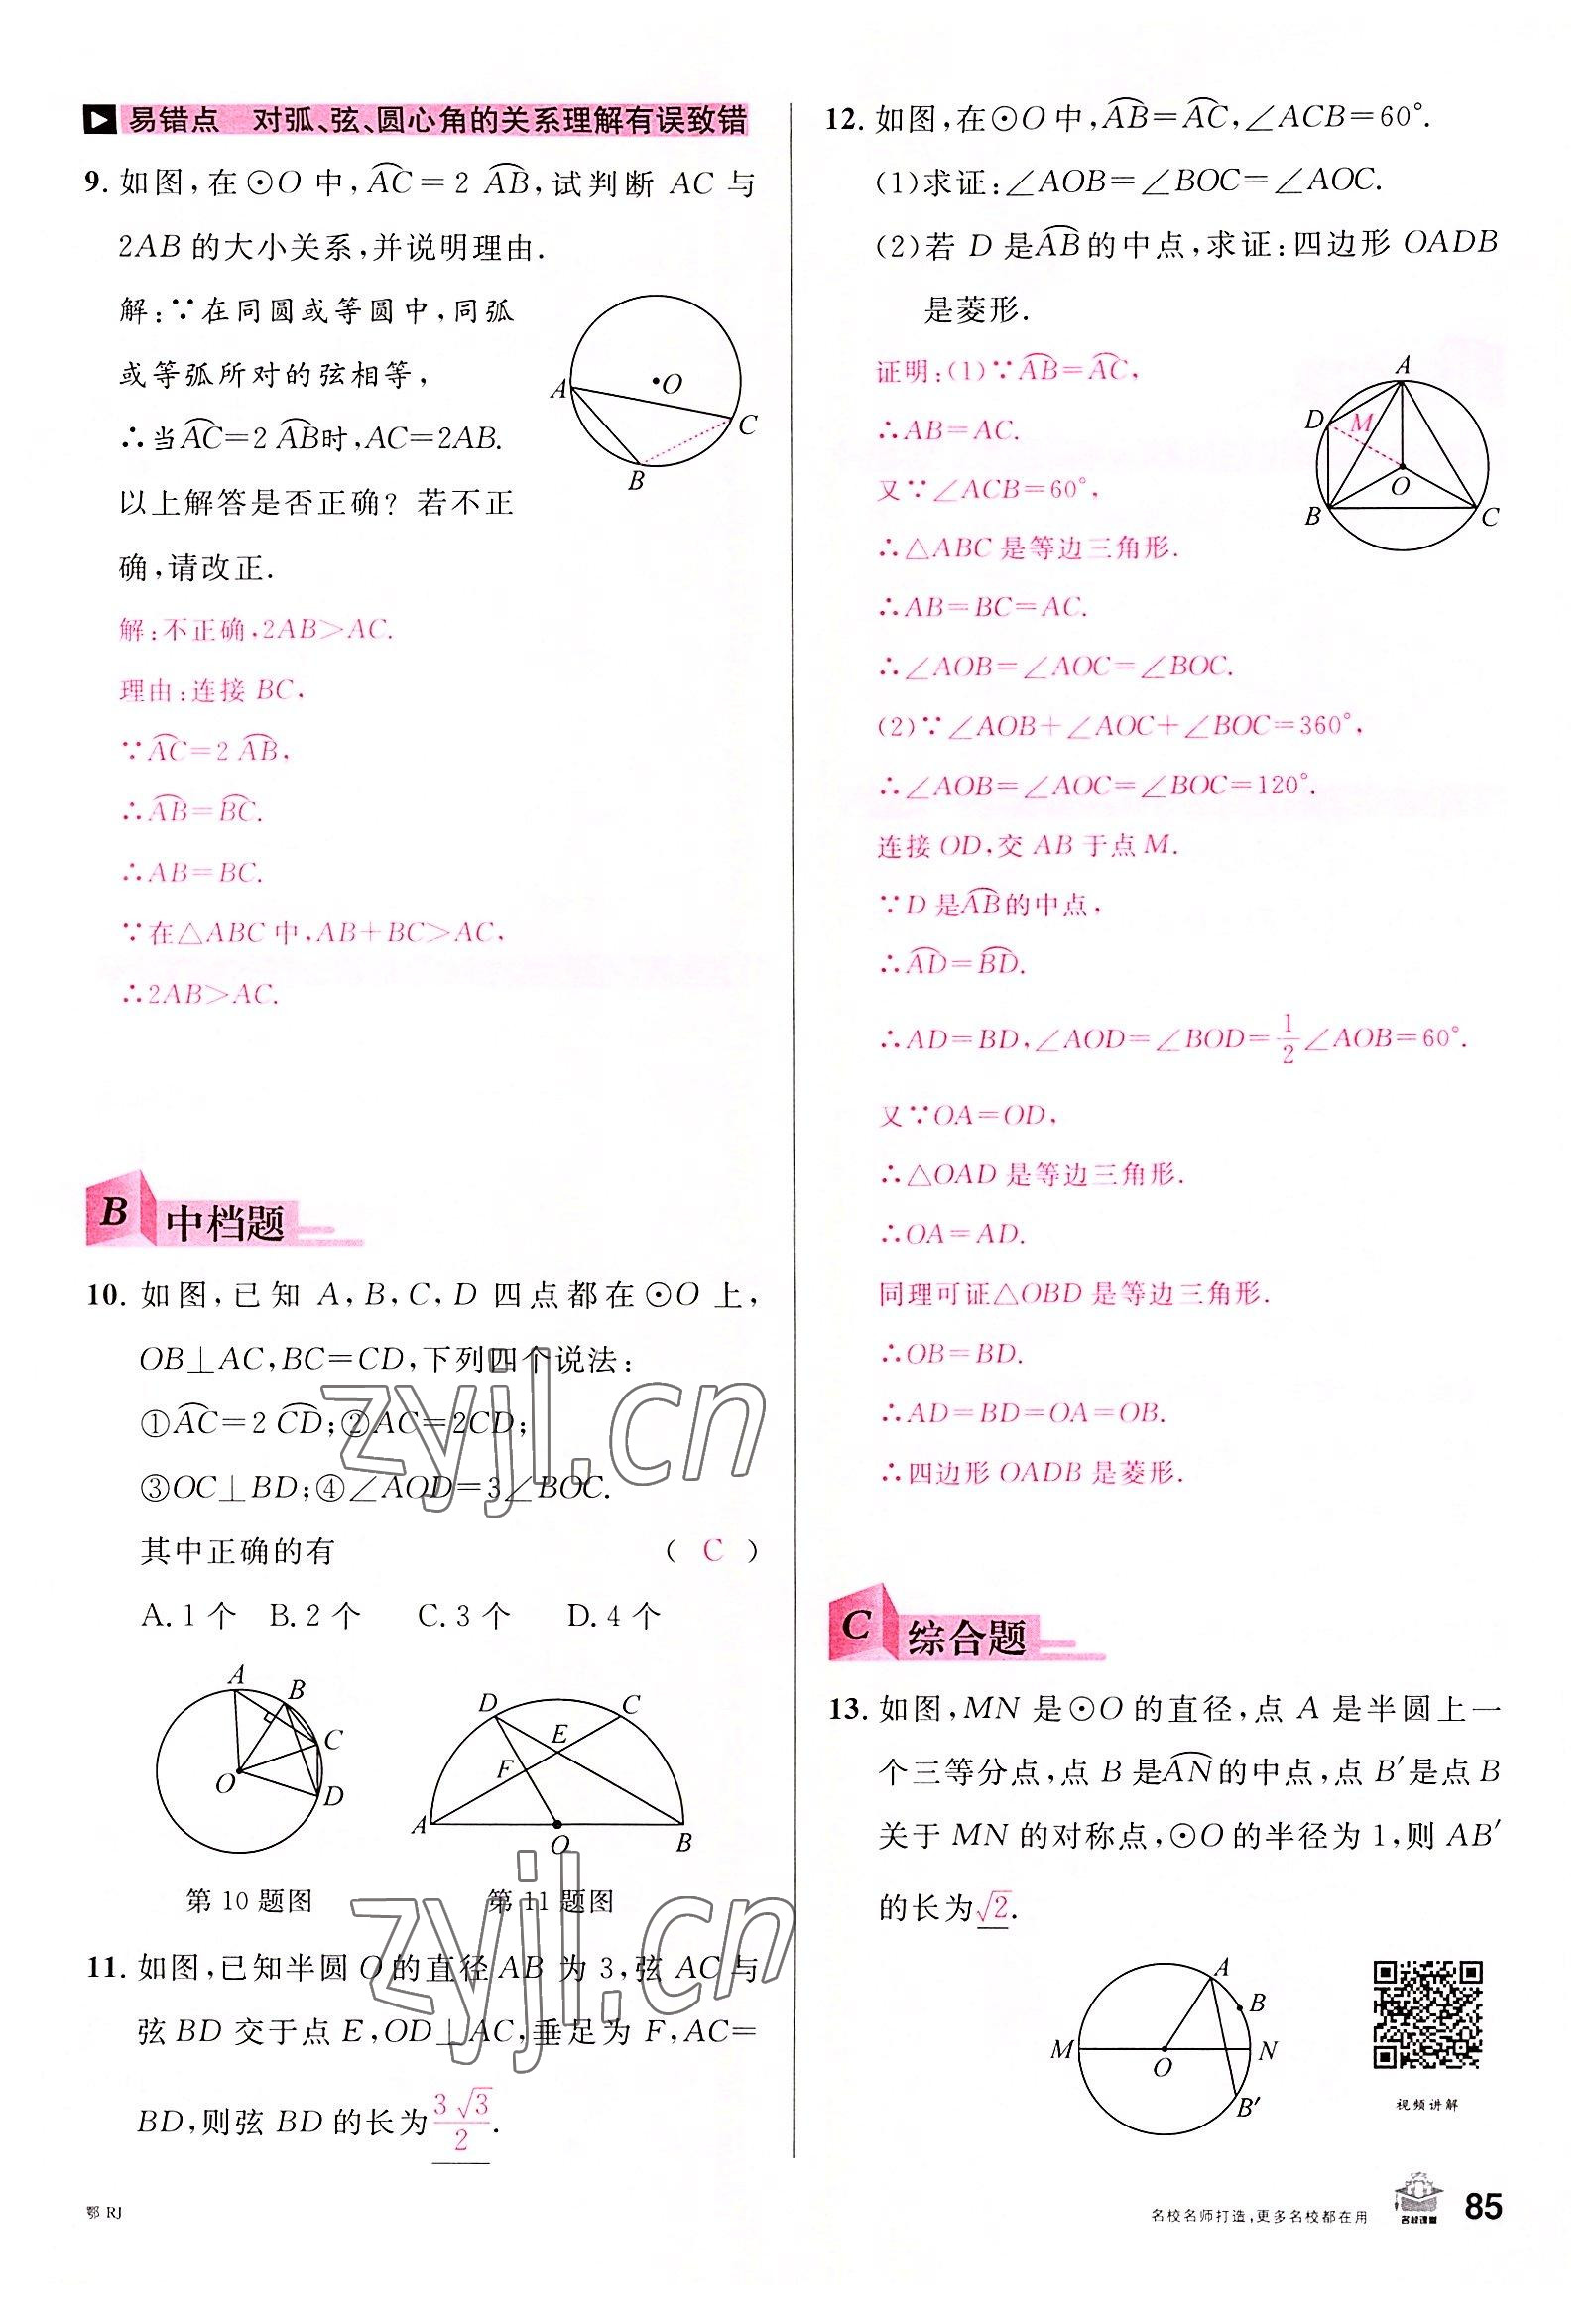 易错点 对弧、弦、圆心角的关系理解有误致错
9. 如图,在⊙O 中,AC⌒=2 AB⌒,试判断 AC 与
2AB 的大小关系,并说明理由.
解:∵在同圆或等圆中,同弧
或等弧所对的弦相等,
∴当AC⌒=2 AB⌒时,AC=2AB.
以上解答是否正确?若不正
确,请改正.
A
O
C
B
解:不正确,2AB>AC.
理由:连接 BC,
∵AC⌒=2 AB⌒,
∴AB⌒=BC⌒.
∴AB=BC.
∵在△ABC 中,AB+BC>AC,
∴2AB>AC.
B 中档题
10. 如图,已知 A,B,C,D 四点都在⊙O 上,
OB⊥AC,BC=CD,下列四个说法:
①AC⌒=2 CD⌒;②AC=2CD;
③OC⊥BD;④∠AOD=3∠BOC.
其中正确的有 ( C )
A. 1 个 B. 2 个 C. 3 个 D. 4 个
A
B
C
O
D
D
C
E
F
A
O
B
第 10 题图 第 11 题图
11. 如图,已知半圆 O 的直径 AB 为 3,弦 AC 与
弦 BD 交于点 E,OD⊥AC,垂足为 F,AC=
BD,则弦 BD 的长为 3√3/2.
12. 如图,在⊙O 中,AB⌒=AC⌒,∠ACB=60°.
(1)求证:∠AOB=∠BOC=∠AOC.
(2)若 D 是AB⌒的中点,求证:四边形 OADB
是菱形.
证明:(1)∵AB⌒=AC⌒,
∴AB=AC.
又∵∠ACB=60°,
∴△ABC 是等边三角形.
∴AB=BC=AC.
∴∠AOB=∠AOC=∠BOC.
A
D
M
O
B
C
(2)∵∠AOB+∠AOC+∠BOC=360°,
∴∠AOB=∠AOC=∠BOC=120°.
连接 OD,交 AB 于点 M.
∵D 是AB⌒的中点,
∴AD⌒=BD⌒.
∴AD=BD,∠AOD=∠BOD=1/2∠AOB=60°.
又∵OA=OD,
∴△OAD 是等边三角形.
∴OA=AD.
同理可证△OBD 是等边三角形.
∴OB=BD.
∴AD=BD=OA=OB.
∴四边形 OADB 是菱形.
C 综合题
13. 如图,MN 是⊙O 的直径,点 A 是半圆上一
个三等分点,点 B 是AN⌒的中点,点 B′是点 B
关于 MN 的对称点,⊙O 的半径为 1,则 AB′
的长为√2.
A
B
M
O
N
B′
视频讲解
zyjl.cn
zyjl.cn
鄂 RJ
名校名师打造,更多名校都在用 名校课堂 85